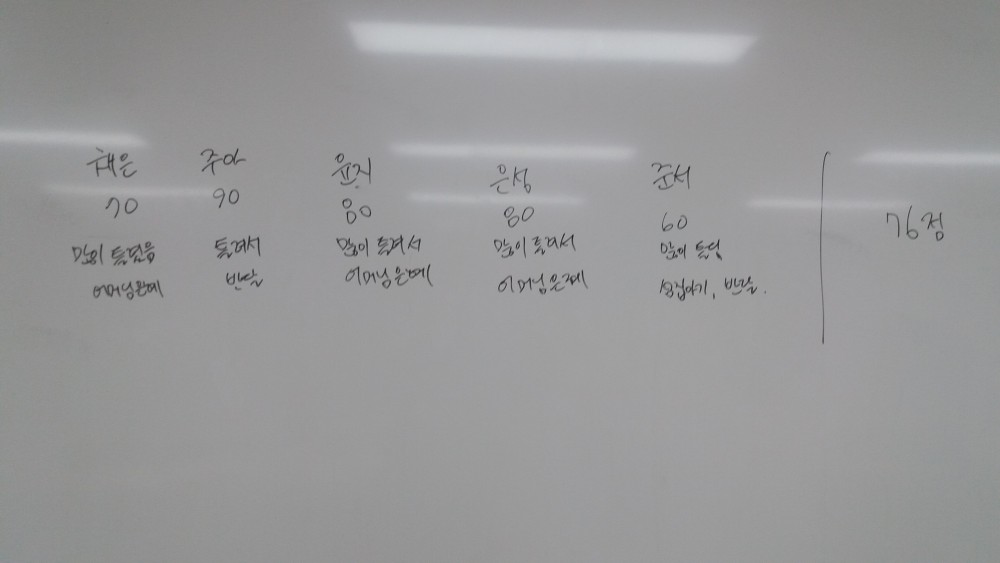 채은 주아 윤지 은성 준서
70 90 80 80 60 76점
많이 틀렸음 틀려서 많이 틀려서 많이 틀려서 많이 틀림
어머님은혜 반달 어머님은혜 어머님은혜 섬집아기, 반달.